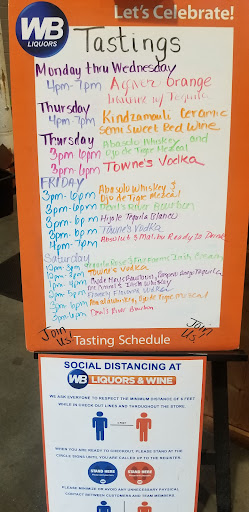 WB
LIQUORS
Let's Celebrate!
Tastings
Monday thru Wednesday
4pm-7pm Agave Orange
Thursday
4pm-7pm Kindzmarauli Ceramic
Semi Sweet Red Wine
Thursday
3pm-6pm Abasolo Whiskey and
Ojo de Tigre Mezcal
3pm-6pm Towne's Vodka
FRIDAY
3pm-6pm Abasolo Whiskey &
Ojo de Tigre Mezcal
3pm-6pm Devil's River Bourbon
3pm-6pm Tequila
3pm-6pm Towne's Vodka
4pm-7pm Absolut & Malibu Ready to Drink
Saturday
Towne's Vodka
Whiskey
Flavored Vodka
Ojo de Tigre Mezcal
Devil's River Bourbon
Join
Us!
Join
Us!
Tasting Schedule
SOCIAL DISTANCING AT
WB LIQUORS & WINE
WE ASK EVERYONE TO RESPECT THE MINIMUM DISTANCE OF 6 FEET
WHILE IN CHECK OUT LINES AND THROUGHOUT THE STORE.
WHEN YOU ARE READY TO CHECKOUT, PLEASE STAND AT THE
CIRCLE SIGNS UNTIL YOU ARE CALLED UP TO THE REGISTER.
STAND HERE
STAND HERE
PLEASE MINIMIZE OR AVOID ANY UNNECESSARY PHYSICAL
CONTACT BETWEEN CUSTOMERS AND TEAM MEMBERS.